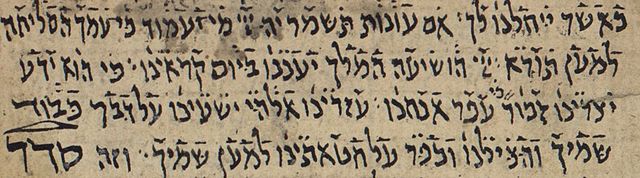 כאשר ייחלנו לך אם עונות תשמר יה יי מי יעמוד כי עמך הסליחה
למען תורא יי הושיעה המלך יעננו ביום קראנו כי הוא ידע
יצרינו זכור כי עפר אנחנו עזרינו אלהי ישעינו על דבר כבוד
שמיך והצילנו וכפר על חטאתינו למען שמיך וזה סדר